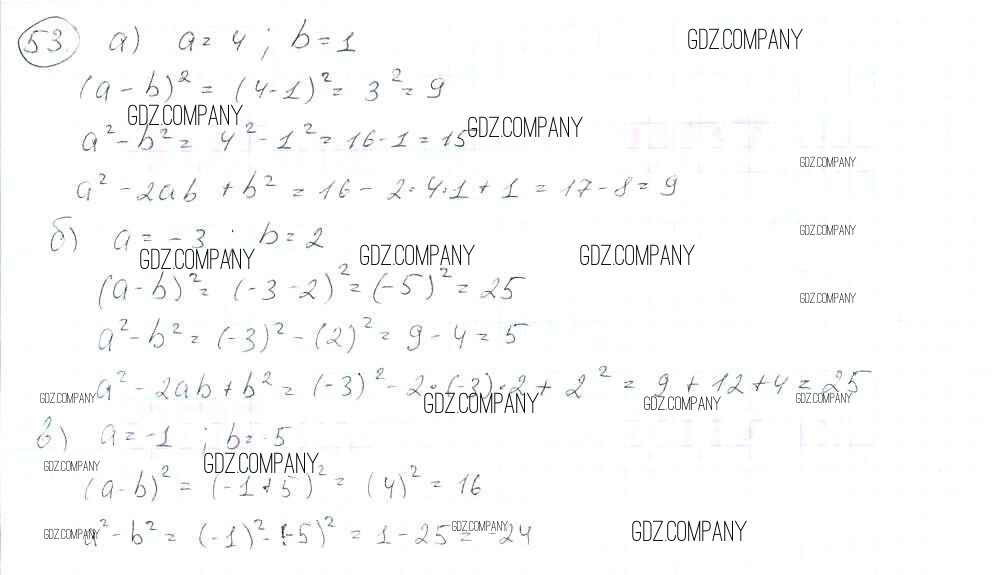 53. а) a = 4 ; b = 1 GDZ.COMPANY
(a - b)² = (4-1)² = 3² = 9
GDZ.COMPANY GDZ.COMPANY
a² - b² = 4² - 1² = 16 - 1 = 15
GDZ.COMPANY
a² - 2ab + b² = 16 - 2·4·1 + 1 = 17 - 8 = 9
б) a = -3 ; b = 2 GDZ.COMPANY
GDZ.COMPANY GDZ.COMPANY GDZ.COMPANY
(a - b)² = (-3 -2)² = (-5)² = 25 GDZ.COMPANY
a² - b² = (-3)² - (2)² = 9 - 4 = 5
a² - 2ab + b² = (-3)² - 2·(-3)·2 + 2² = 9 + 12 + 4 = 25
GDZ.COMPANY GDZ.COMPANY GDZ.COMPANY GDZ.COMPANY
в) a = -1 ; b = -5
GDZ.COMPANY GDZ.COMPANY
(a - b)² = (-1 + 5)² = (4)² = 16
GDZ.COMPANY GDZ.COMPANY GDZ.COMPANY
a² - b² = (-1)² - (-5)² = 1 - 25 = -24